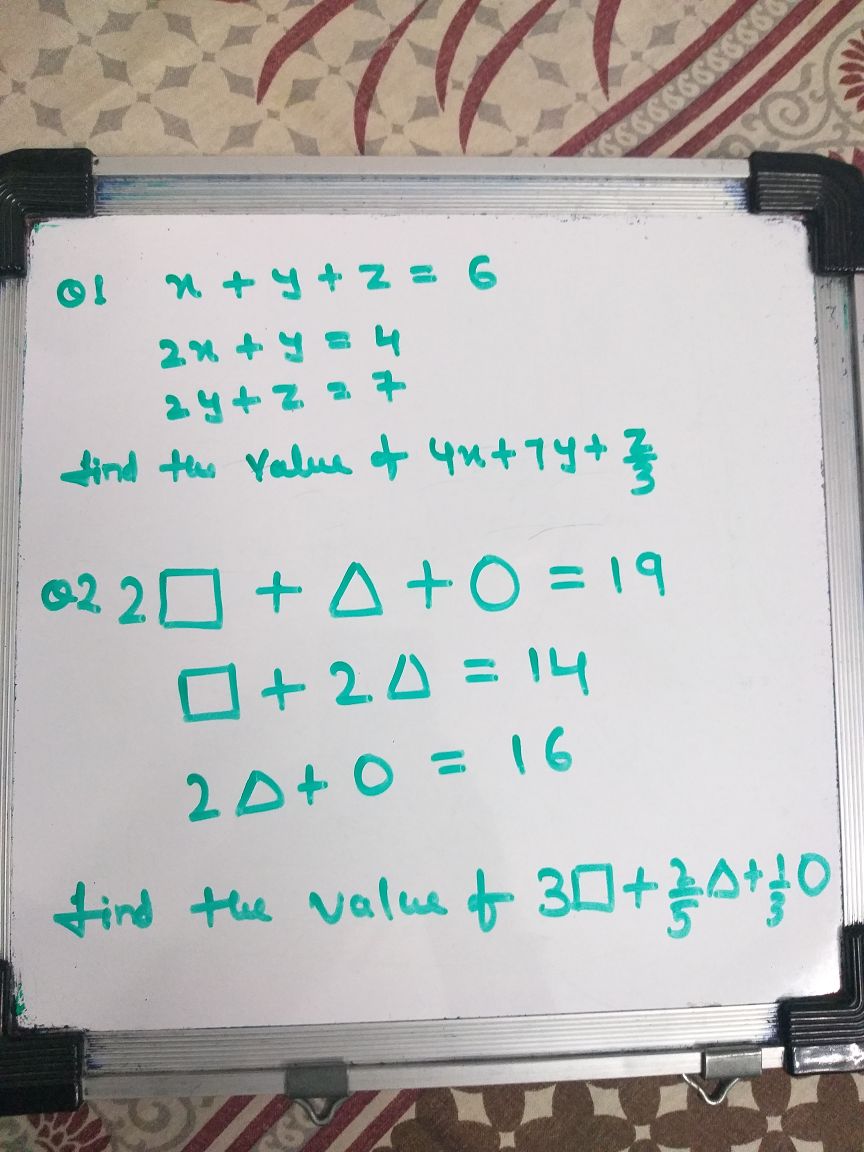 Q1 x + y + z = 6
2x + y = 4
2y + z = 7
find the value of 4x + 7y + z/3
Q2 2□ + △ + ○ = 19
□ + 2△ = 14
2△ + ○ = 16
find the value of 3□ + 2/5△ + 1/3○